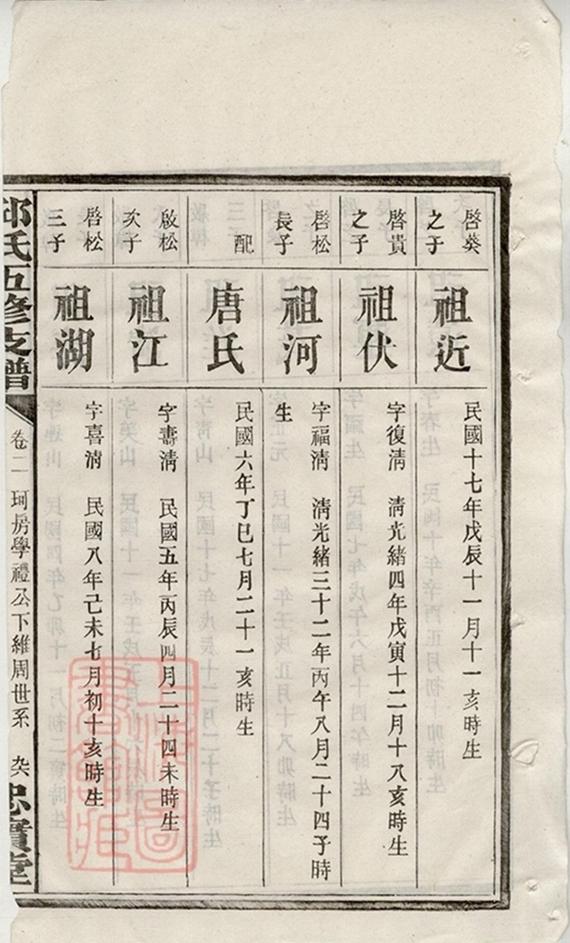 啓葵
之子
祖近
民國十七年戊辰十一月十一亥時生
啓貴
之子
祖伏
字復淸 淸光緒四年戊寅十二月十八亥時生
啓松
長子
祖河
字福淸 淸光緒三十二年丙午八月二十四子時
生
配
唐氏
民國六年丁巳七月二十一亥時生
啟松
次子
祖江
字壽淸 民國五年丙辰四月二十四未時生
啓松
三子
祖湖
字喜淸 民國八年己未七月初十亥時生
邱氏五修支譜
卷二 珂房學禮公下維周世系
忠實堂